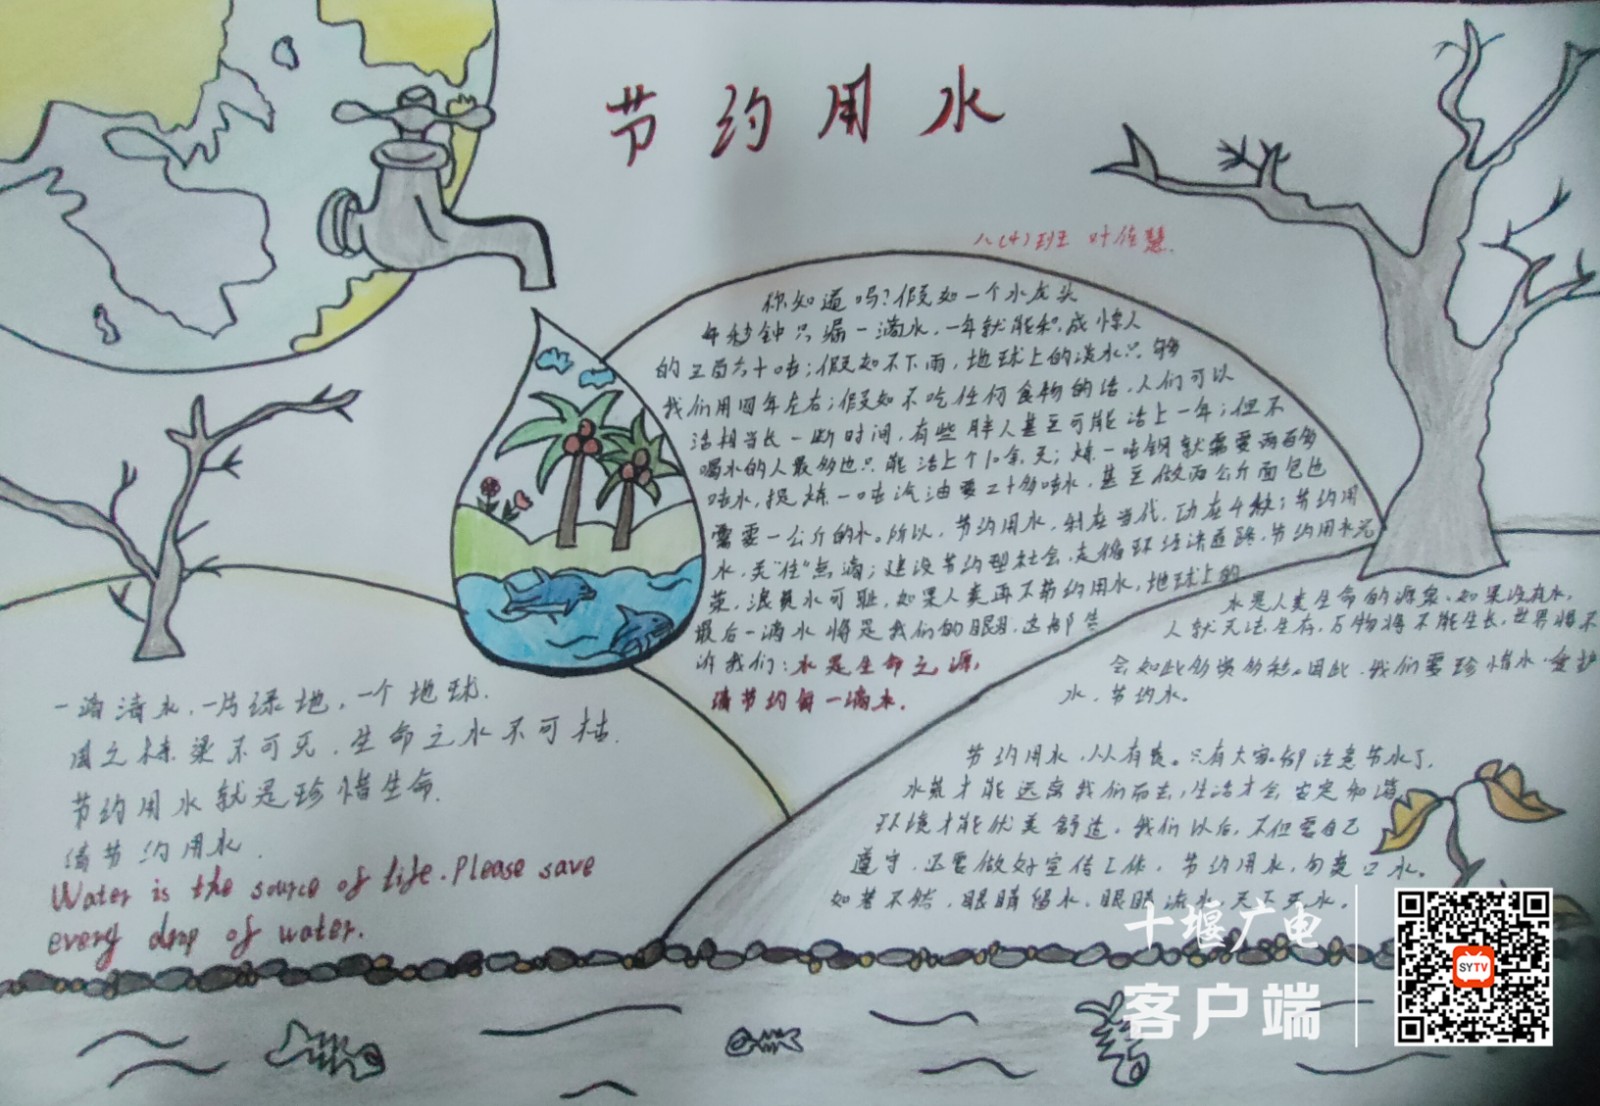 节约用水
八(4)班 叶佐慧
你知道吗？假如一个水龙头
每秒钟只漏一滴水，一年就能积成惊人
的三百六十吨；假如不下雨，地球上的淡水只够
我们用四年左右；假如不吃任何食物的话，人们可以
活相当长一断时间，有些胖人甚至可能活上一年；但不
喝水的人最多也只能活上个10余天；炼一吨钢就需要两百多
吨水，提炼一吨汽油要二十多吨水，甚至做两公斤面包也
需要一公斤的水。所以，节约用水，利在当代，功在千秋；节约用
水，关“住”点滴；建设节约型社会，走循环经济道路，节约用水光
荣，浪费水可耻，如果人类再不节约用水，地球上的
最后一滴水将是我们的眼泪，这都告
诉我们：水是生命之源，
请节约每一滴水.
水是人类生命的源泉，如果没有水，
人就无法生存，万物将不能生长，世界将不
会如此多姿多彩。因此，我们要珍惜水，爱护
水，节约水。
一滴清水，一片绿地，一个地球.
国之栋梁不可灭，生命之水不可枯.
节约用水就是珍惜生命.
请节约用水.
Water is the source of life. Please save
every drop of water.
节约用水，人人有责。只有大家都注意节水了，
水荒才能远离我们而去，生活才会安定和谐，
环境才能优美舒适。我们以后，不但要自己
遵守，还要做好宣传工作，节约用水，勿竭口水。
如若不然，眼睛留水，眼睛流水，天下无水。
十堰广电
客户端
SYTV